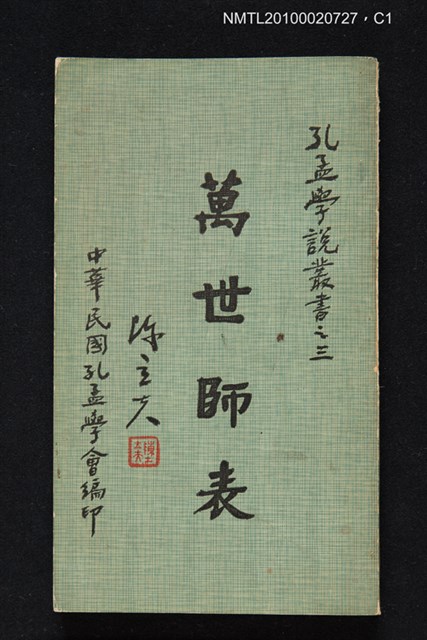 NMTL20100020727，C1
孔孟學說叢書之三
萬世師表
陳立夫
中華民國孔孟學會編印